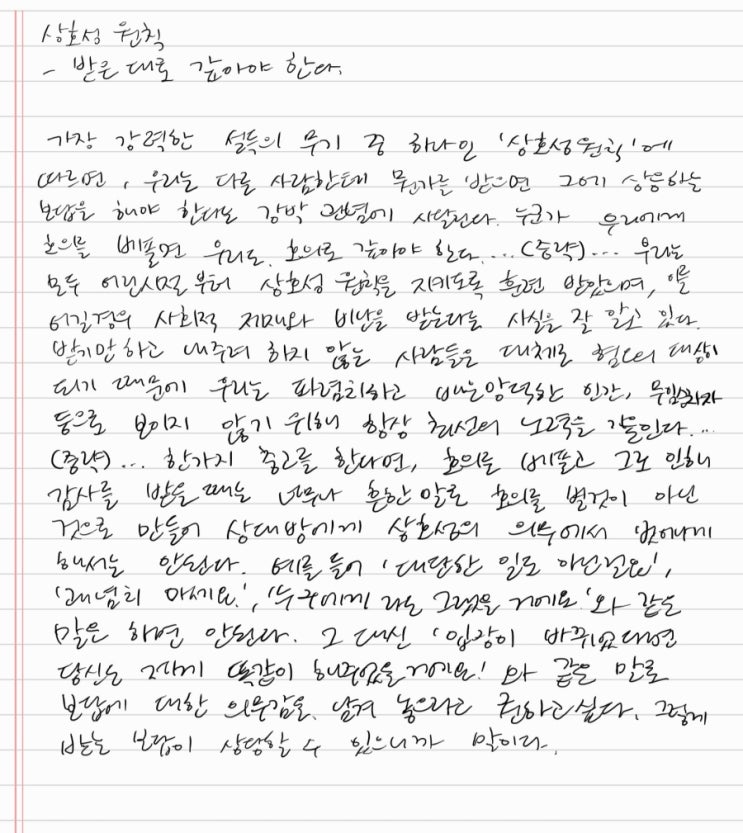 상호성 원칙
- 받은 대로 갚아야 한다.
가장 강력한 설득의 무기 중 하나인 '상호성 원칙'에
따르면, 우리는 다른 사람한테 뭔가를 받으면 그에 상응하는
보답을 해야 한다는 강박 관념에 시달린다. 누군가 우리에게
호의를 베풀면 우리도 호의로 갚아야 한다....(중략)... 우리는
모두 어린시절 부터 상호성 원칙을 지키도록 훈련 받았으며, 이를
어길경우 사회적 제재와 비난을 받는다는 사실을 잘 알고 있다.
받기만 하고 내주려 하지 않는 사람들은 대체로 혐오의 대상이
되기 때문에 우리는 파렴치하고 배은망덕한 인간, 무임승차자
등으로 보이지 않기 위해 항상 최선의 노력을 기울인다...
(중략)... 한가지 충고를 한다면, 호의를 베풀고 그로 인해
감사를 받을 때는 너무나 흔한 말로 호의를 별것이 아닌
것으로 만들어 상대방에게 상호성의 의무에서 벗어나게
해서는 안된다. 예를 들어 '대단한 일도 아닌걸요',
'괘념치 마세요.', '누구에게 라도 그랬을 거예요.'와 같은
말은 하면 안된다. 그 대신 '입장이 바뀌었다면
당신도 제게 똑같이 해주었을거예요!' 와 같은 말로
보답에 대한 의무감을 남겨 놓으라고 권하고싶다. 그렇게
받는 보답이 상당할 수 있으니까 말이다.